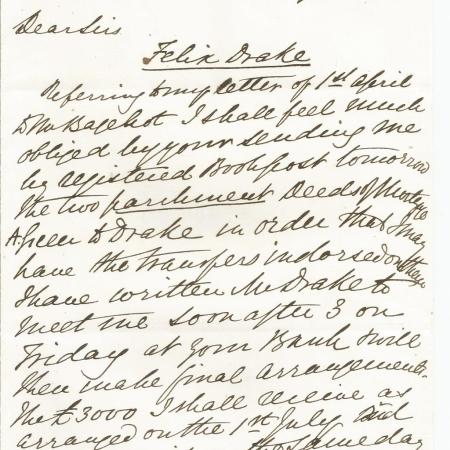 Dear Sirs
Felix Drake
Referring to my letter of 1st April
to Mr Bagehot I shall feel much
obliged by your sending me
by registered Bookpost tomorrow
the two parchment Deeds of Mortgage
Green to Drake in order that I may
have the transfers indorsed on them
I have written Mr Drake to
meet me soon after 3 on
Friday at your Bank & will
then make final arrangements.
The £3000 I shall receive as
arranged on the 1st July and
same day